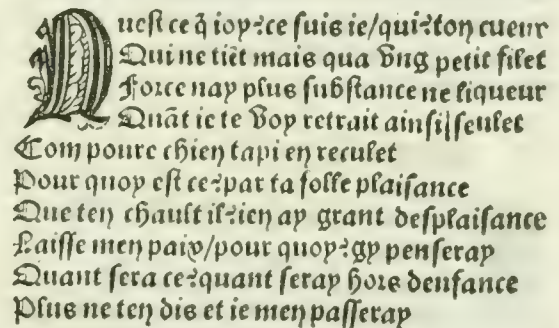 Quest ce q̃ ioy?ce suis ie/qui?ton cueur
Qui ne tiẽt mais qua vng petit filet
Force nay plus substance ne liqueur
Quãt ie te voy retrait ainsi|seulet
Com poure chien tapi en reculet
Pour quoy est ce?par ta folle plaisance
Que ten chault il?ien ay grant desplaisance
Laisse men paix/pour quoy?gy penseray
Quant sera ce?quant seray hors denfance
Plus ne ten dis et ie men passeray